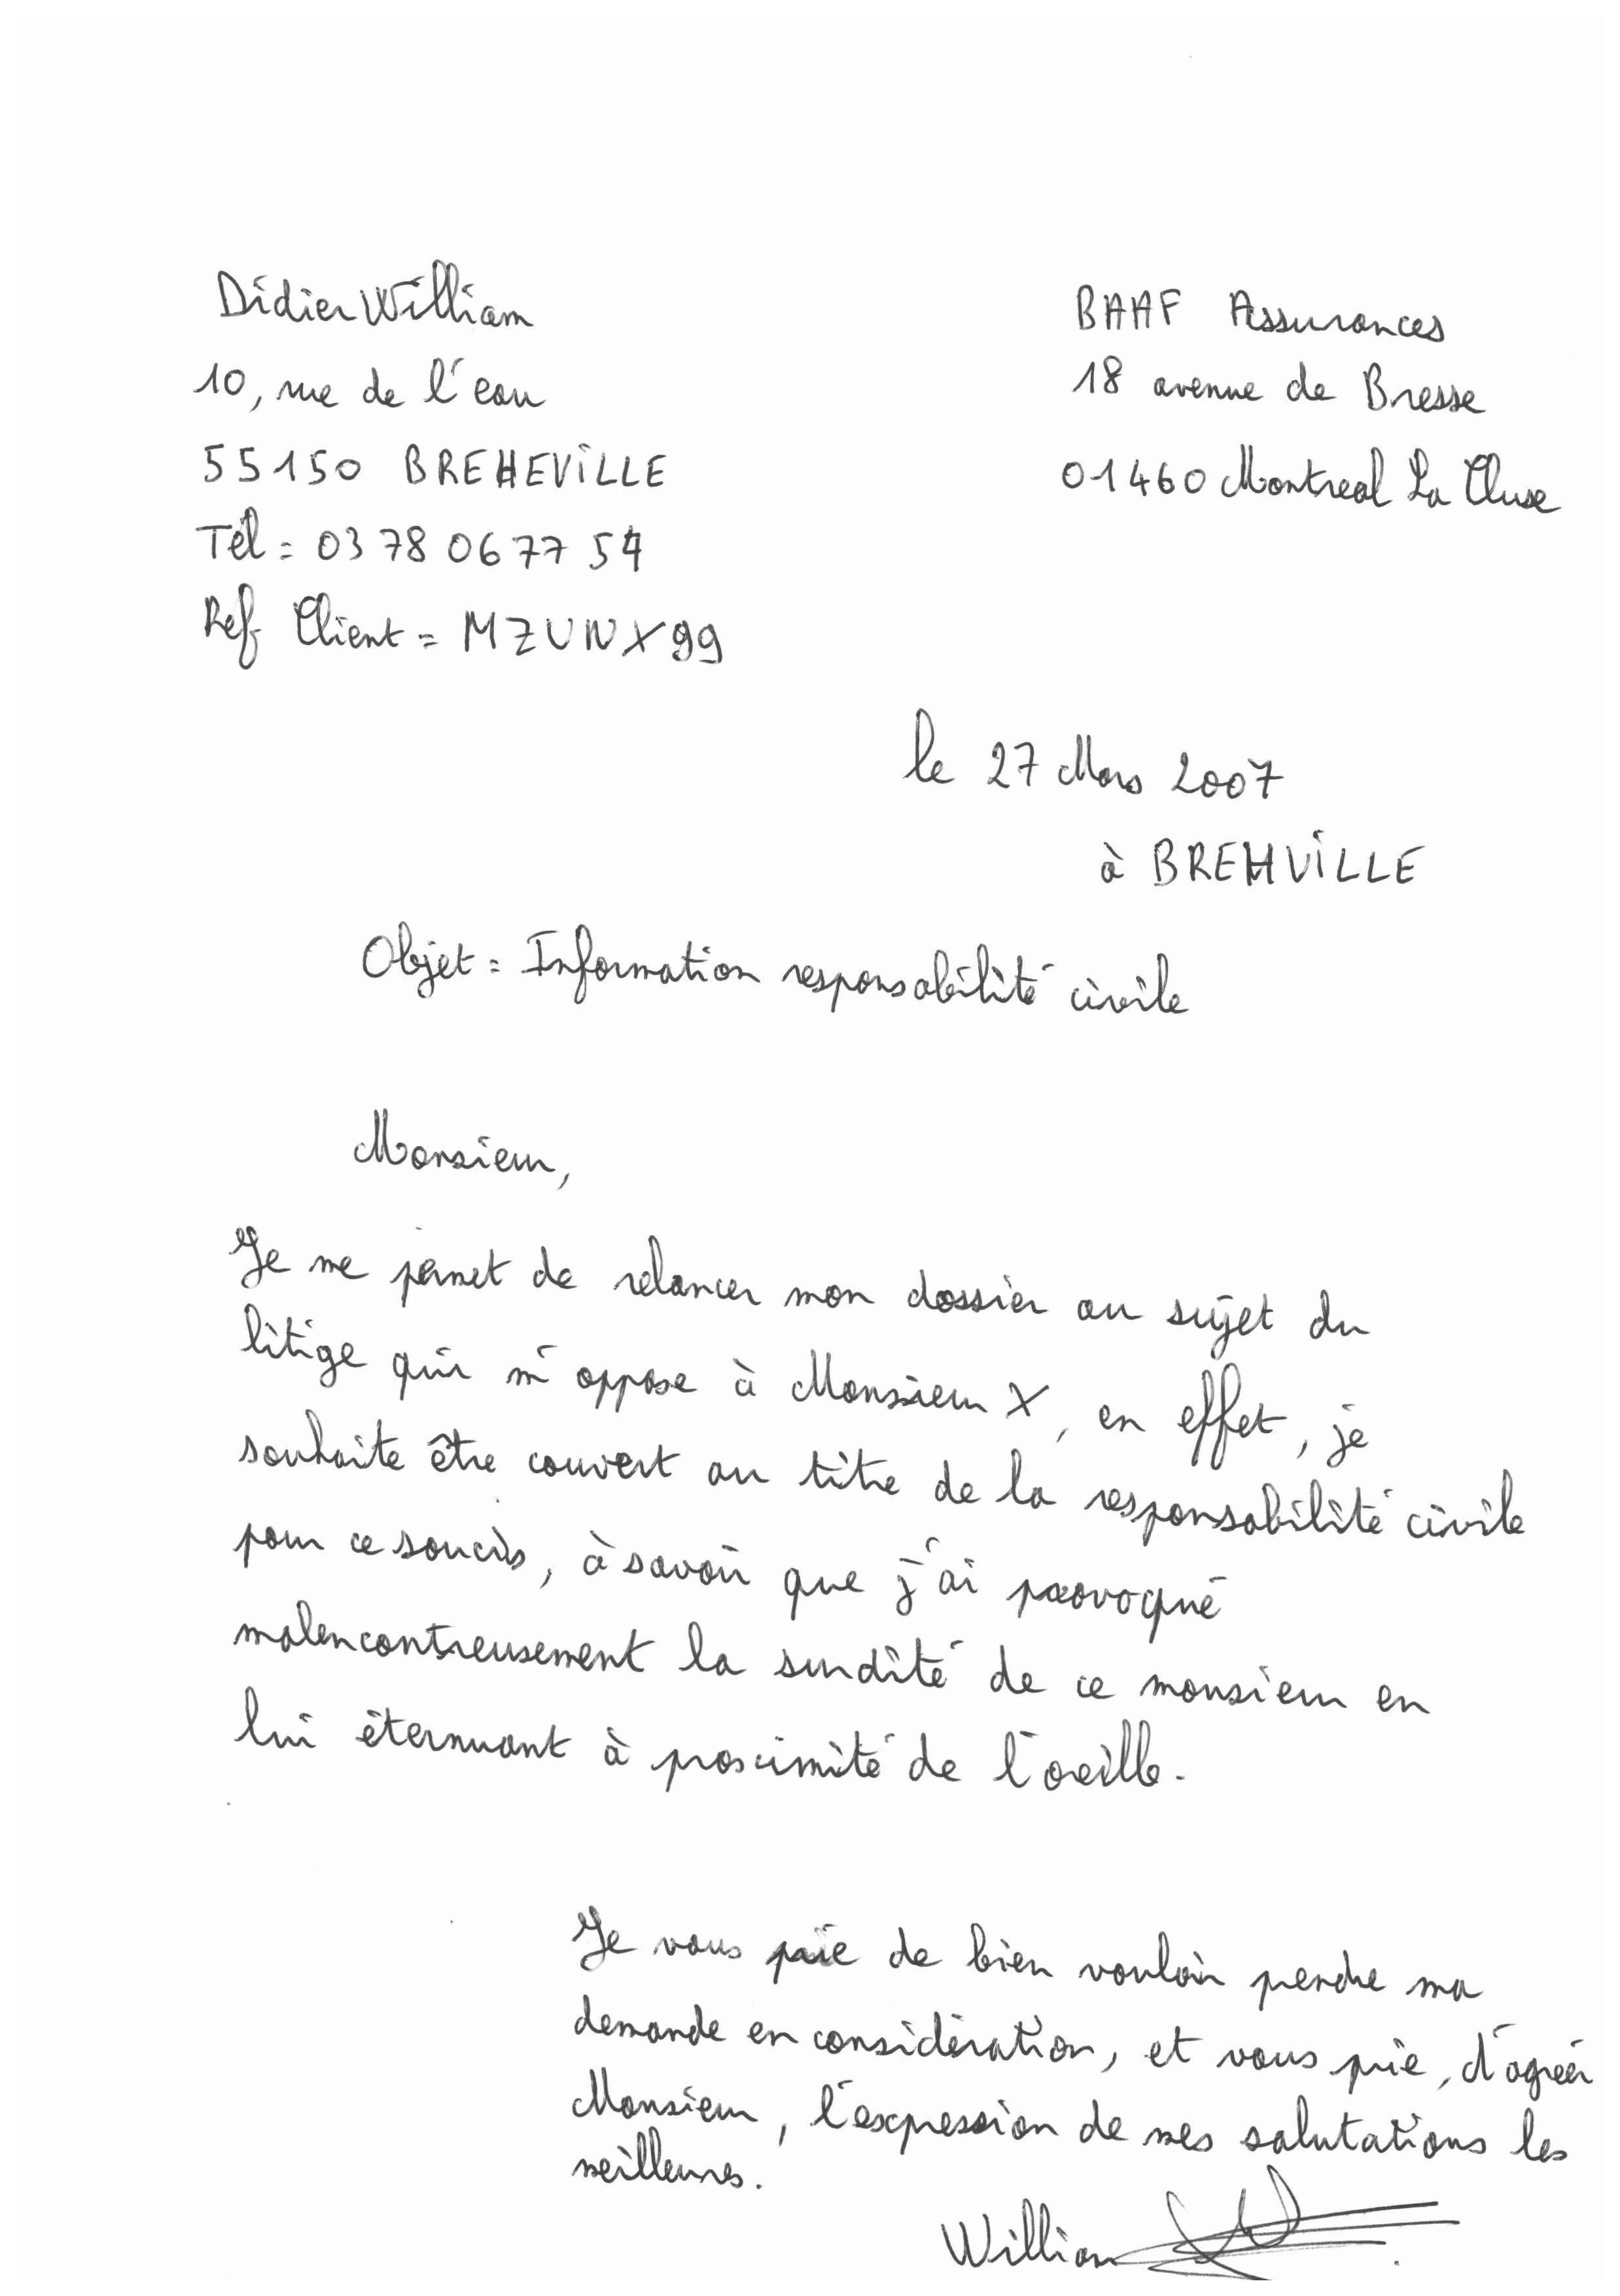 Didier William
10, rue de l'eau
55150 BREHEVILLE
Tél = 03 78 06 77 54
Ref Client = MZUNX99
BAAF Assurances
18 avenue de Bresse
01460 Montreal La Cluse
le 27 Mars 2007
à BREHVILLE
Objet = Information responsabilité civile
Monsieur,
Je me permet de relancer mon dossier au sujet du
litige qui m'oppose à Monsieur X, en effet, je
souhaite être couvert au titre de la responsabilité civile
pour ce soucis, à savoir que j'ai provoqué
malencontreusement la surdité de ce monsieur en
lui éternuant à proximité de l'oreille.
Je vous prie de bien vouloir prendre ma
demande en considération, et vous prie, d'agréer
Monsieur, l'expression de mes salutations les
meilleures.
William